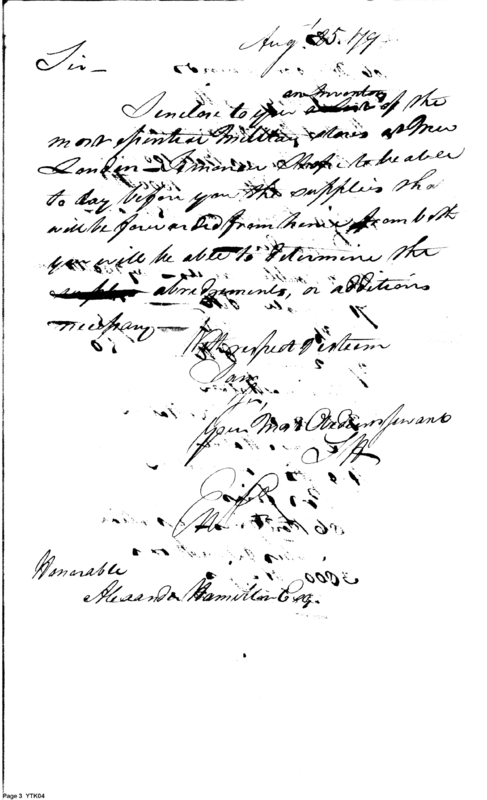 Augt 25. 79
Sir –
I enclose to you an Inventory of the
most essential Military stores at New
London – Tomorrow I hope to be able
to lay before you the supplies tha
will be forwarded from hence from both
you will be able to determine the
abridgements, or additions
necessary –
With respect & esteem
I am
Sir,
your Most Obedient servant
Honorable
Alexander Hamilton Esq.
3000
Page 3 YTK04